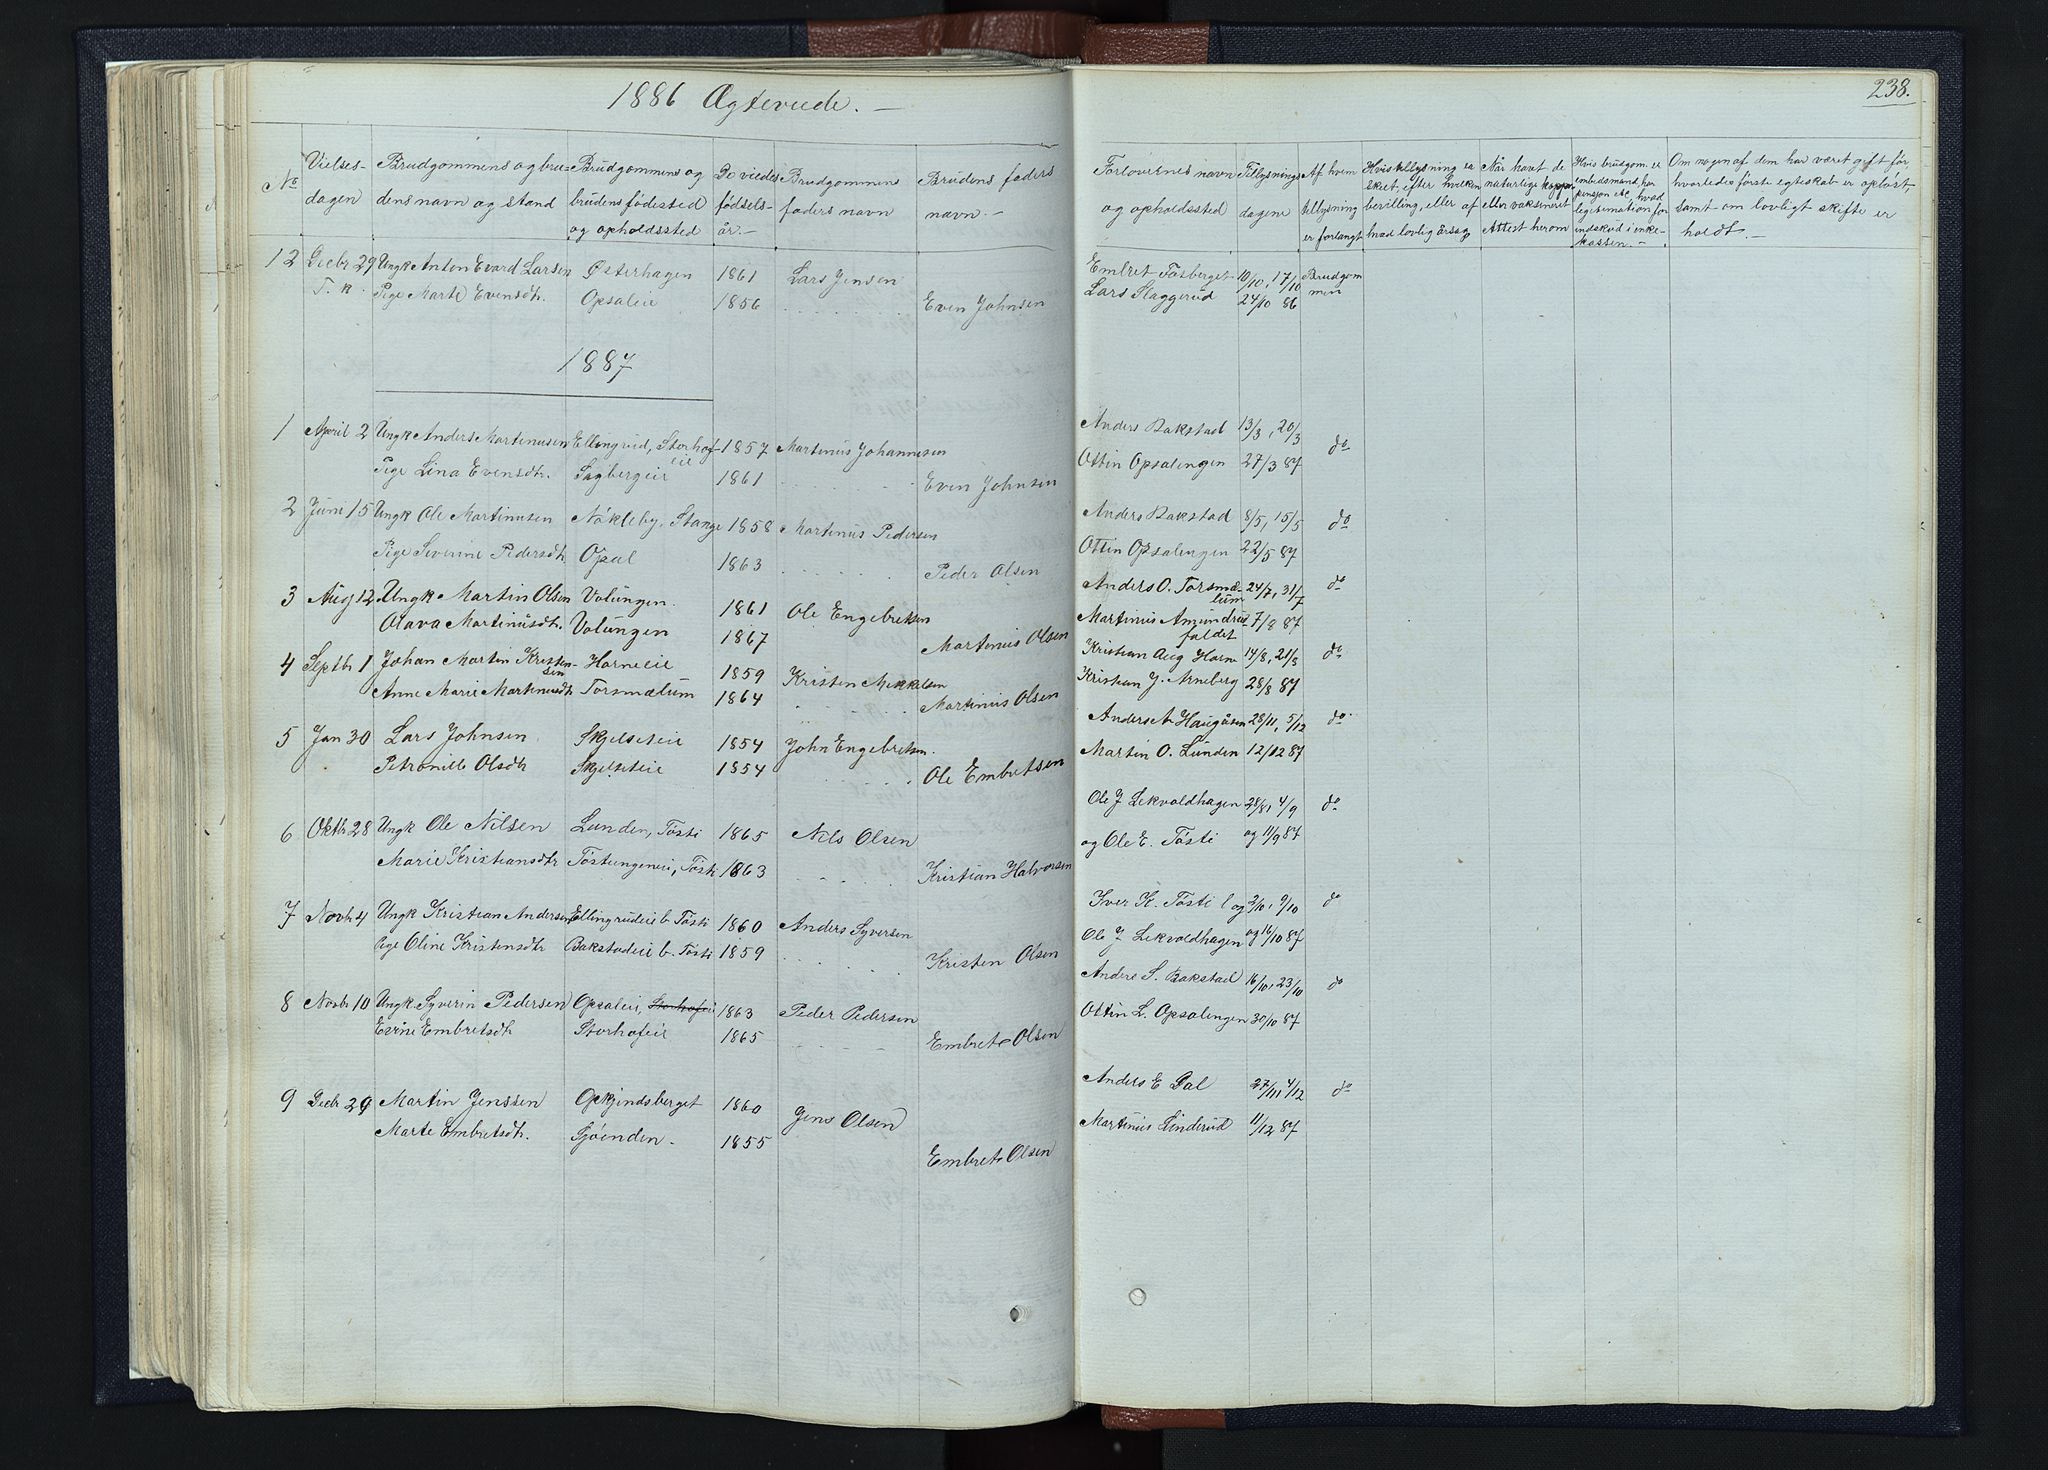 1886 Ægteviede. —
238.
No
Vielses-
dagen
Brudgommens og bru-
dens navn og stand
Brudgommens og
brudens fødested
og opholdssted
De viedes
fødsels-
år. —
Brudgommens
faders navn
Brudens faders
navn. —
Forlovernes navn
og opholdssted
Tillysnings
dagene
Af hvem
tillysning
er forlangt
Hvis tillysning er
sket, efter hvilken
bevilling, eller af
hvad lovlig Årsag
Når havt de
naturlige kopper
eller vaksineret
Attest herom
Hvis brudgom. er
embedsmand, har
pension &c, hvad
legitimation for
indskud i enke-
kassen. —
Om nogen af dem har været gift før
hvorledes første egteskab er opløst
samt om lovligt skifte er
holdt. —
12 Decbr 29 Ungk Anton Evard Larsen Østerhagen 1861 Lars Jensen Embret Fosberget 10/10, 17/10 Brudgom
T. k. Pige Marte Evensdtr. Opsaleie 1856 Even Johnsen Lars Slaggerud 24/10 86 men
1887
1 April 2 Ungk Anders Martinusen Ellingrud, Storhof- 1857 Martinus Johannesen Anders Bakstad 13/3, 20/3 do
eie
Pige Lina Evensdtr. Sagbergeie 1861 Even Johnsen Ottin Opsalengen 27/3 87
2 Juni 15 Ungk Ole Martinusen Nøkleby, Stange 1858 Martinus Pedersen Anders Bakstad 8/5, 15/5 do
Pige Severine Pedersdtr Opsal 1863 Peder Olsen Ottin Opsalengen 22/5 87
3 Aug 12 Ungk Martin Olsen Volungen. 1861 Ole Engebretsen Anders O. Torsmæ- 24/7, 31/7 do
lum
Olava Martinusdtr. Volungen 1867 Martinus Olsen Martinus Amundrus- 7/8 87
faldet
4 Septbr 1 Johan Martin Kristen- Horneeie 1859 Kristen Mikkelsen Kristian Aug Horne 14/8, 21/8 do
sen
Anne Marie Martinusdtr Torsmælum 1864 Martinus Olsen Kristian J. Arneberg 28/8 87
5 Jan 30 Lars Johnsen Skjelseteie 1854 John Engebretsen. Anders A Haugåsen 28/11, 5/12 do
Petronille Olsdtr Skjelseteie 1854 Ole Embretsen Martin O. Lunden 12/12 87
6 Oktbr 28 Ungk Ole Nilsen Lunden, Tøsti 1865 Nils Olsen Ole J Lekvoldhagen 28/8, 4/9 do
Marie Kristiansdtr Tøstungeneie, Tøsti 1863 Kristian Halvorsen og Ole E. Tøsti og 11/9 87
7 Novbr 4 Ungk Kristian Andersen Ellingrudeie b. Tøsti 1860 Anders Syversen Iver K. Tøsti og 2/10, 9/10 do
Pige Oline Kristensdtr Bakstadeie b. Tøsti 1859 Kristen Olsen Ole J Lekvoldhagen og 16/10 87
8 Novbr 10 Ungk Syverin Pedersen Opsaleie, Storhofeie 1863 Peder Pedersen Anders S. Bakstad 16/10, 23/10 do
Evine Embretsdtr Storhofeie 1865 Embret Olsen Ottin L. Opsalengen 30/10 87
9 Decbr 29 Martin Jenssen Opkjindsberget 1860 Jens Olsen Anders E Dal 27/11, 4/12 do
Marte Embretsdtr. Sjøenden - 1855 Embret Olsen Martinus Linderud 11/12 87